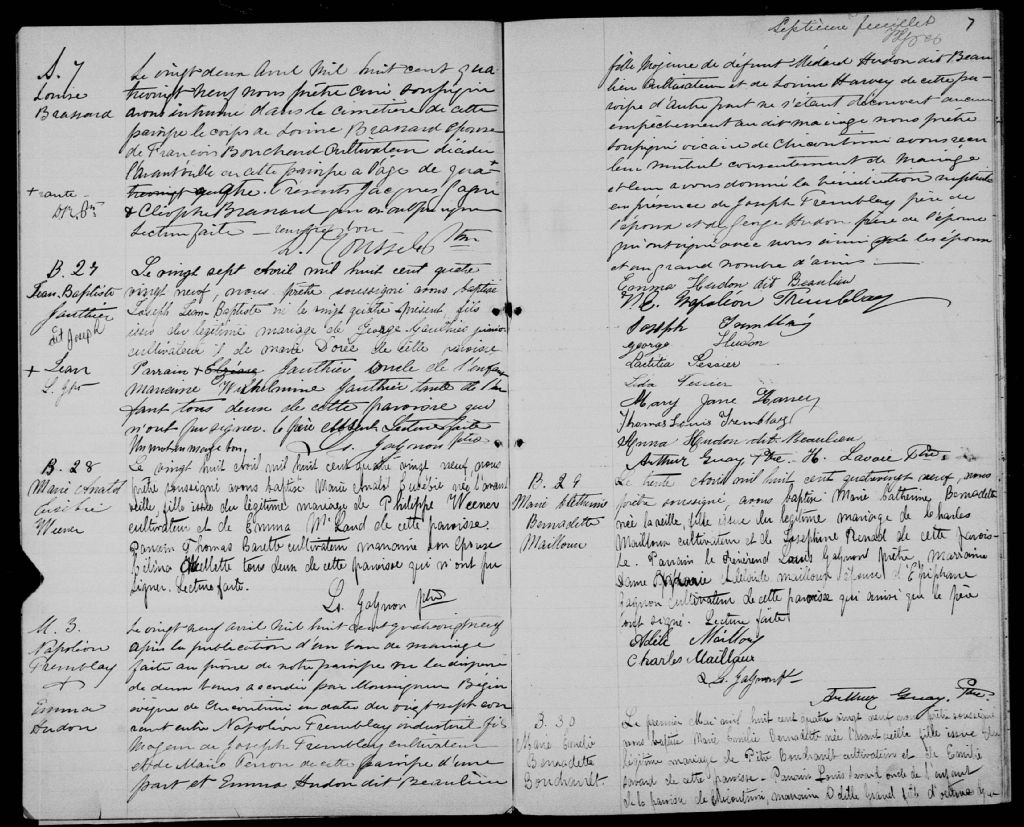 S. 7
Louise
Brassard
+ rante
Le vingt deux Avril Mil huit cent qua
trevingt neuf nous prêtre curé soussigné
avons inhumé dans le cimetière de cette
paroisse le corps de Louise Brassard épouse
de François Bouchard Cultivateur décédée
l'avant veille en cette paroisse à l'âge de qua
Présents Jacques
& Cléophe Brassard qui n'ont pu signer
Lecture faite
B. 27
Jean-Baptiste
Gauthier
+ Jean
Le vingt sept Avril mil huit cent quatre
vingt neuf, nous prêtre soussigné avons baptisé
Joseph Jean-Baptiste né le vingt quatre présent, fils
issu du légitime mariage de George Gauthier
cultivateur & de Marie Doré de cette paroisse
Parrain + Gauthier oncle de l'enfant
marraine Wilhelmine Gauthier tante de l'en
fant tous deux de cette paroisse qui
n'ont pu signer. Le père absent Lecture faite
Un mot en marge bon.
L. Gagnon ptre
B. 28
Marie
Weener
Le vingt huit Avril mil huit cent quatre vingt neuf, nous
prêtre soussigné avons baptisé Marie née l'avant
veille, fille issue du légitime mariage de Philippe Weener
cultivateur et de Emma de cette paroisse.
Parrain Thomas cultivateur marraine son épouse
Célina Ouellette tous deux de cette paroisse qui n'ont pu
signer. Lecture faite.
Ls. Gagnon ptre
M. 3.
Napoléon
Tremblay
+
Emma
Hudon
Le vingt neuf Avril Mil huit cent quatrevingt neuf
après la publication d'un ban de mariage
faite au prône de notre paroisse vu la dispense
de deux bans accordée par Monseigneur Bégin
évêque de Chicoutimi en date du vingt sept cou
rant entre Napoléon Tremblay industriel fils
Majeur de Joseph Tremblay cultivateur
et de Marie de cette paroisse d'une
part et Emma Hudon dit Beaulieu
Septième feuillet
7
fille Majeure de défunt Médard Hudon dit Beau
lieu Cultivateur et de Louise Harvey de cette pa
roisse d'autre part ne s'étant découvert aucun
empêchement au dit mariage nous prêtre
soussigné vicaire de Chicoutimi avons reçu
leur mutuel consentement de mariage
et leur avons donné la bénédiction nuptiale
en présence de Joseph Tremblay père de
l'époux et de George Hudon frère de l'épouse
qui ont signé avec nous ainsi que les époux
et un grand nombre d'amis
Emma Hudon dit Beaulieu
Napoléon Tremblay
Joseph Tremblay
George Hudon
Laetitia Tessier
Lida Tessier
Mary Jane Harvey
Thomas Louis Tremblay
Anna Hudon dit Beaulieu
Arthur Guay Ptre. H. Lavoie Ptre.
B. 29
Marie Catherine
Bernadette
Mailloux
Le trente Avril mil huit cent quatrevingt neuf, nous
prêtre soussigné, avons baptisé Marie Catherine, Bernadette
née la veille, fille issue du légitime mariage de Charles
Mailloux cultivateur et de Josephine Renald de cette parois-
se. Parrain le Révérend Louis Gagnon prêtre, marraine
Dame Adélaïde Mailloux épouse d'Épiphane
Gagnon cultivateur de cette paroisse qui ainsi que le père
ont signé. Lecture faite
Adèle Mailloux
Charles Mailloux
Ls. Gagnon
Arthur Guay. Ptre
B. 30
Marie Emélie
Bernadette
Bouchardt.
Le premier Mai mil huit cent quatre vingt neuf nous prêtre soussigné
avons baptisé Marie Emélie Bernadette née l'avant veille fille issue du
légitime mariage de Pitre Bouchardt cultivateur et de Emélie
Savard de cette paroisse. Parrain Louis Savard oncle de l'enfant
de la paroisse de Chicoutimi, marraine Odille